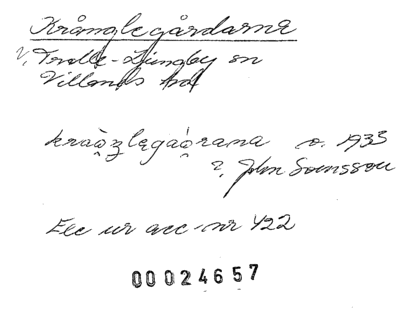 Krånglegårdarna
Trolle-Ljungby sn
Villands hd
kråŋlegårana o. 1933
John Svensson
Exc ur acc-nr 422
00024657